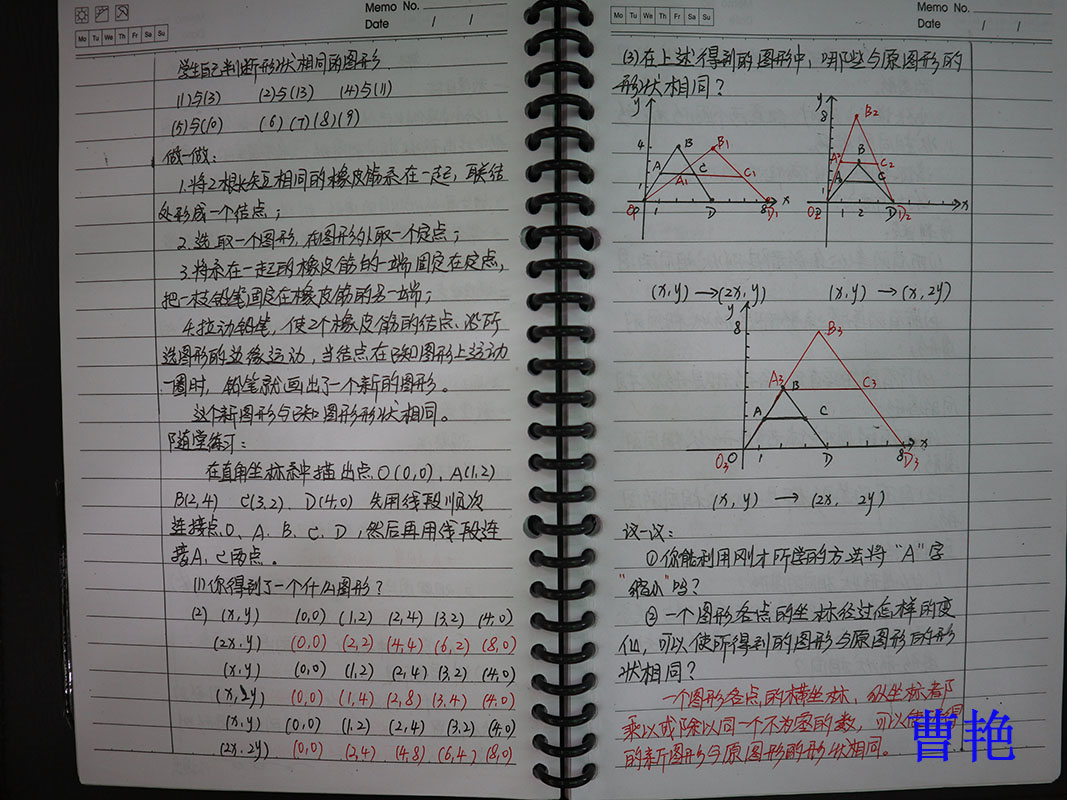 Memo No.
Date / /
Mo Tu We Th Fr Sa Su
学生自己判断形状相同的图形
(1)与(3) (2)与(13) (4)与(11)
(5)与(10) (6)(7)(8)(9)
做一做:
1.将2根长短相同的橡皮筋系在一起,联结
处形成一个结点;
2.选取一个图形,在图形外取一个定点;
3.将系在一起的橡皮筋的一端固定在定点,
把一枝铅笔固定在橡皮筋的另一端;
4.拉动铅笔,使2个橡皮筋的结点沿所
选图形的边缘运动,当结点在已知图形上运动
一圈时,铅笔就画出了一个新的图形。
这个新图形与已知图形形状相同。
随堂练习:
在直角坐标系中描出点O(0,0)、A(1,2)
B(2,4) C(3,2)、D(4,0) 先用线段顺次
连接点O、A、B、C、D,然后再用线段连
接A、C两点。
(1)你得到了一个什么图形?
(2) (x,y) (0,0) (1,2) (2,4) (3,2) (4,0)
(2x,y) (0,0) (2,2) (4,4) (6,2) (8,0)
(x,y) (0,0) (1,2) (2,4) (3,2) (4,0)
(x,2y) (0,0) (1,4) (2,8) (3,4) (4,0)
(x,y) (0,0) (1,2) (2,4) (3,2) (4,0)
(2x,2y) (0,0) (2,4) (4,8) (6,4) (8,0)
Memo No.
Date / /
Mo Tu We Th Fr Sa Su
(3)在上述得到的图形中,哪些与原图形的
形状相同?
y 4 1 A B C A1 B1 C1 O 1 D 8 D1 x
y 8 1 B2 A2 B C2 A C O2 1 2 D D2 x
(x,y)→(2x,y) (x,y)→(x,2y)
y 8 B3 A3 B C3 A C O3 O 1 D 8 D3 x
(x,y)→(2x,2y)
议一议:
①你能利用刚才所学的方法将“A”字
“缩小”吗?
②一个图形各点的坐标经过怎样的变
化,可以使所得到的图形与原图形的形
状相同?
一个图形各点的横坐标,纵坐标都
乘以或除以同一个不为零的数,可以使
的新图形与原图形的形状相同。
曹艳